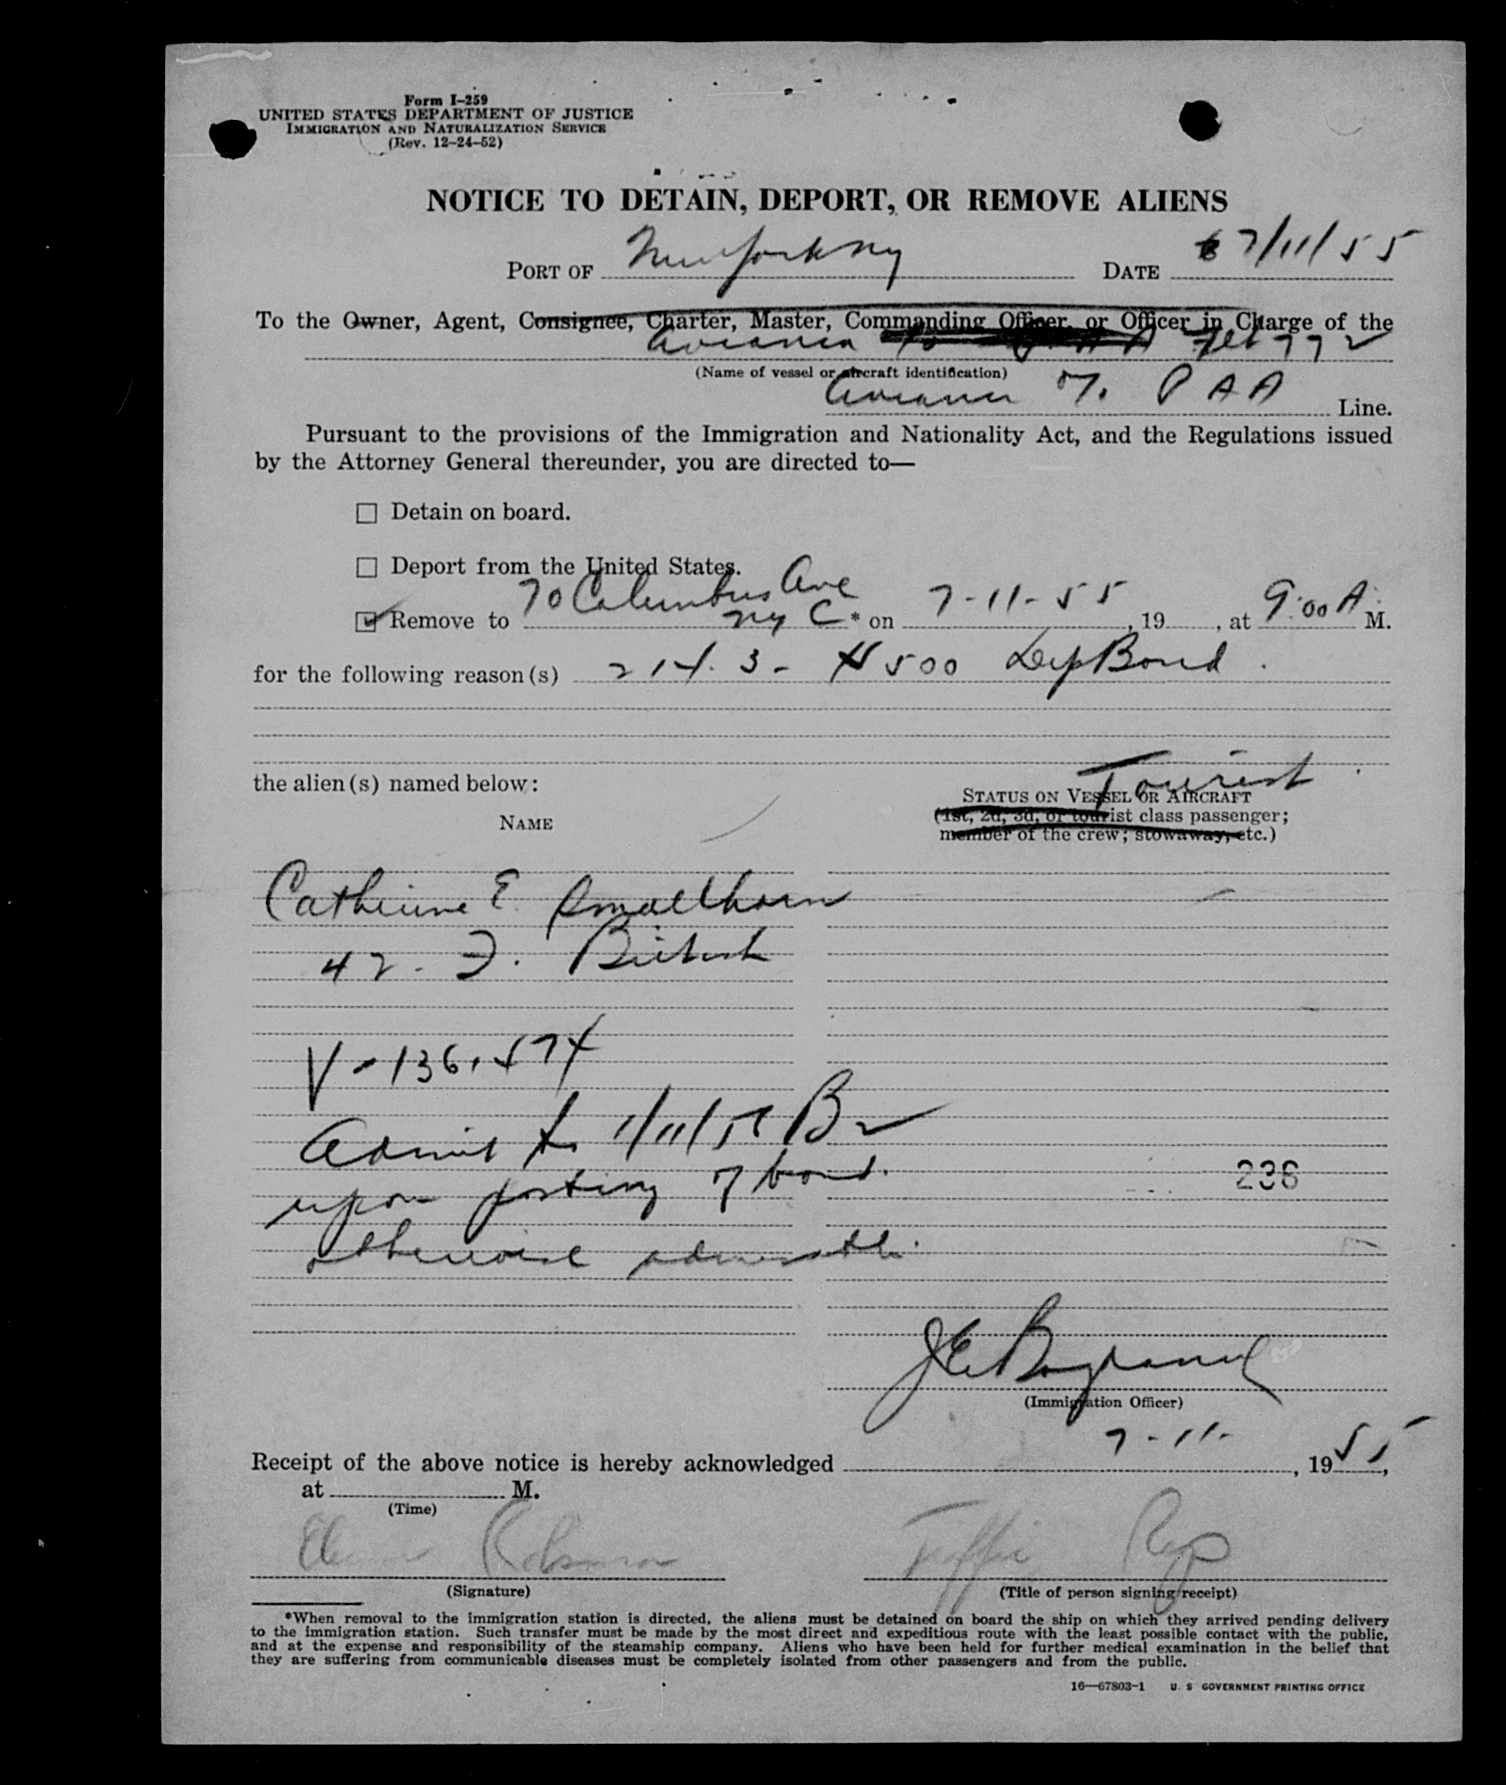 Form I-259
UNITED STATES DEPARTMENT OF JUSTICE
IMMIGRATION AND NATURALIZATION SERVICE
(Rev. 12-24-52)
NOTICE TO DETAIN, DEPORT, OR REMOVE ALIENS
PORT OF New York NY DATE 7/11/55
To the Owner, Agent, Consignee, Charter, Master, Commanding Officer, or Officer in Charge of the
Avianca
(Name of vessel or aircraft identification)
Avianca PAA Line.
Pursuant to the provisions of the Immigration and Nationality Act, and the Regulations issued
by the Attorney General thereunder, you are directed to—
☐ Detain on board.
☐ Deport from the United States.
☑ Remove to 70 Columbus Ave NYC * on 7-11-55, 19 , at 9:00 A M.
for the following reason(s) 214.3 - $500 Dep Bond.
the alien(s) named below:
Tourist
STATUS ON VESSEL OR AIRCRAFT
(1st, 2d, 3d, or tourist class passenger;
member of the crew; stowaway, etc.)
NAME
Catherine E Smallhorn
42 - F. British
V-136,574
Admit to 1/11/56 B2
upon posting of bond.
otherwise admissible.
236
(Immigration Officer)
Receipt of the above notice is hereby acknowledged 7-11-, 1955,
at M.
(Time)
Robinson Traffic Rep
(Signature) (Title of person signing receipt)
*When removal to the immigration station is directed, the aliens must be detained on board the ship on which they arrived pending delivery
to the immigration station. Such transfer must be made by the most direct and expeditious route with the least possible contact with the public,
and at the expense and responsibility of the steamship company. Aliens who have been held for further medical examination in the belief that
they are suffering from communicable diseases must be completely isolated from other passengers and from the public.
16—67803-1 U. S GOVERNMENT PRINTING OFFICE